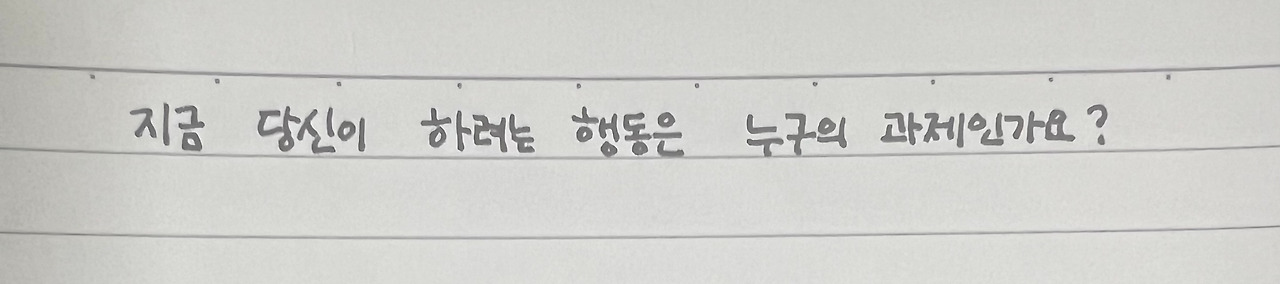 지금 당신이 하려는 행동은 누구의 과제인가요?